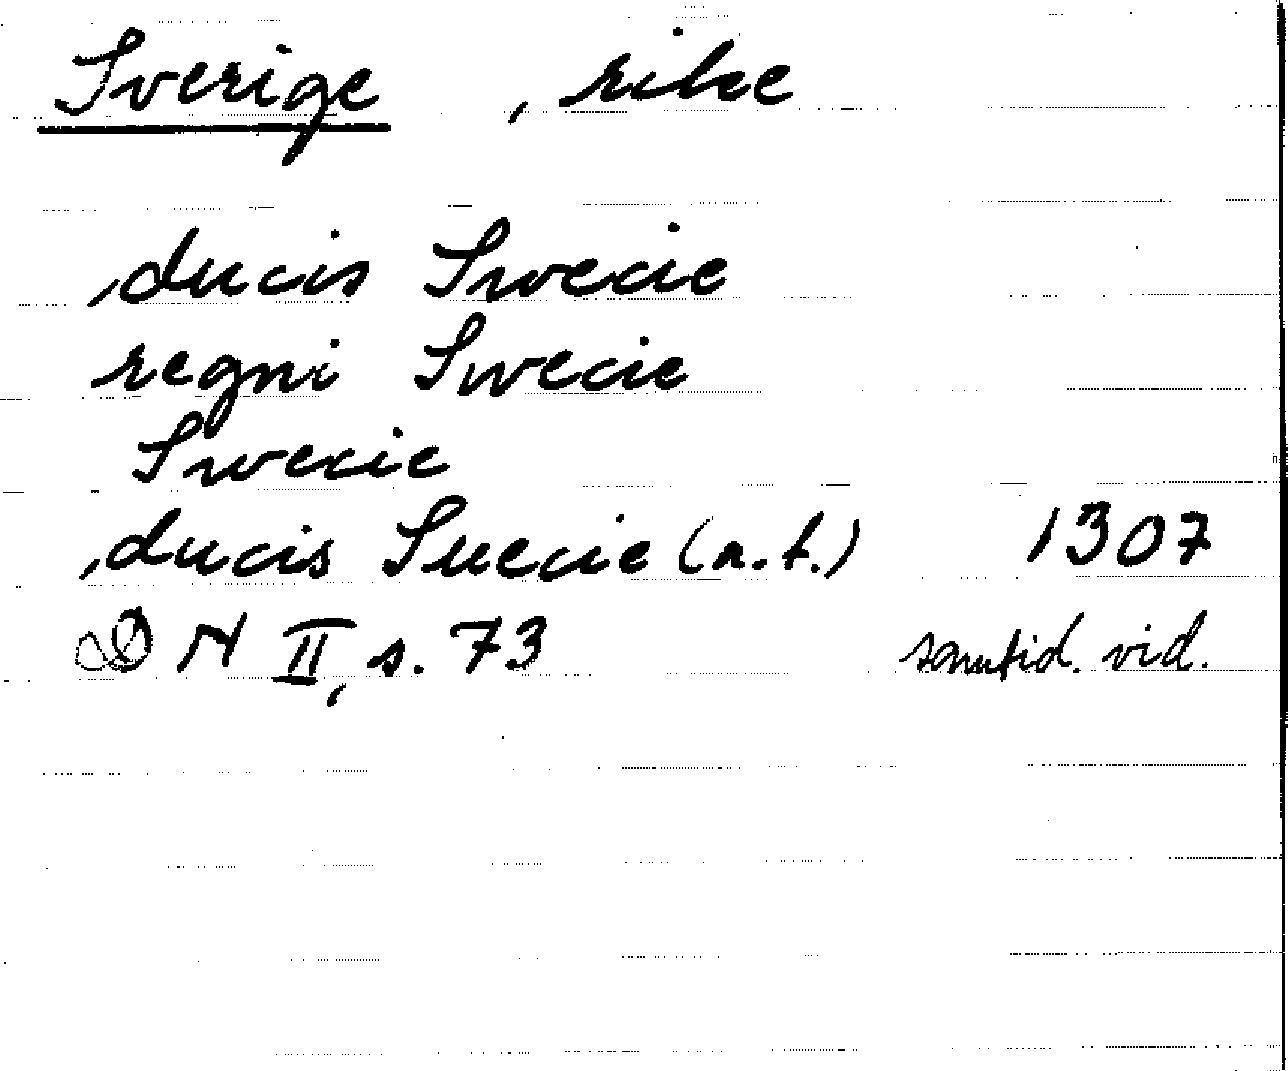 Sverige , rike
ducis Swecie
regni Swecie
Swecie
ducis Suecie (n.t.) 1307
DN II, s. 73 samtid. vid.